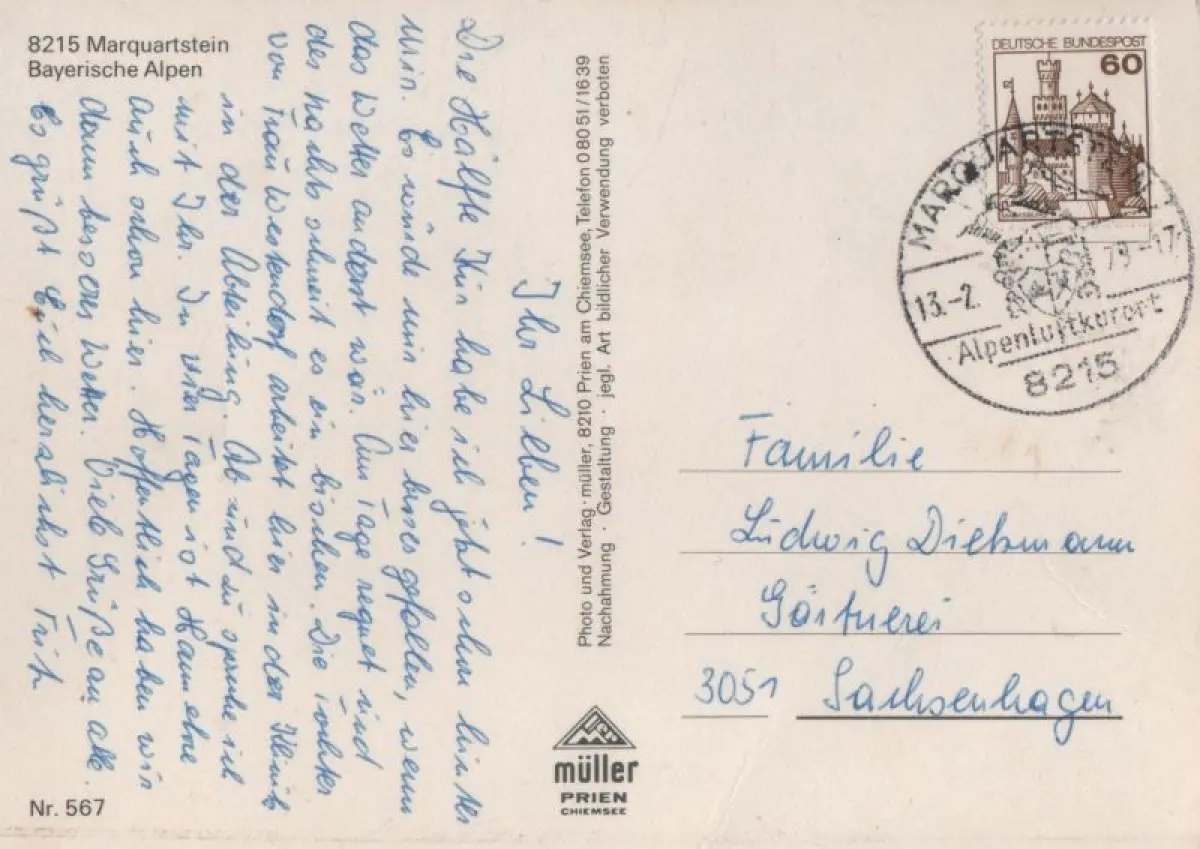 8215 Marquartstein
Bayerische Alpen
Ihr Lieben!
Die Hälfte Kur habe ich jetzt schon hinter
mir. Es würde mir hier besser gefallen, wenn
das Wetter anderst wär. Am Tage regnet und
des nachts schneit es ein bischen. Die Tochter
von Frau Westendorf arbeitet hier in der Klinik
in der Abteilung. Ab und zu spreche ich
mit Ihr. In vier Tagen ist
auch schon hier. Hoffentlich haben wir
dann besseres Wetter. Viele Grüße an alle.
Es grüßt Euch herzlichst
Nr. 567
Photo und Verlag · müller, 8210 Prien am Chiemsee, Telefon 08051/1639
Nachahmung · Gestaltung · jegl. Art bildlicher Verwendung verboten
müller
PRIEN
CHIEMSEE
DEUTSCHE BUNDESPOST
60
MARQUARTSTEIN
13.-2. 79.-17
Alpenluftkurort
8215
Familie
Ludwig Diekmann
Gärtnerei
3051 Sachsenhagen